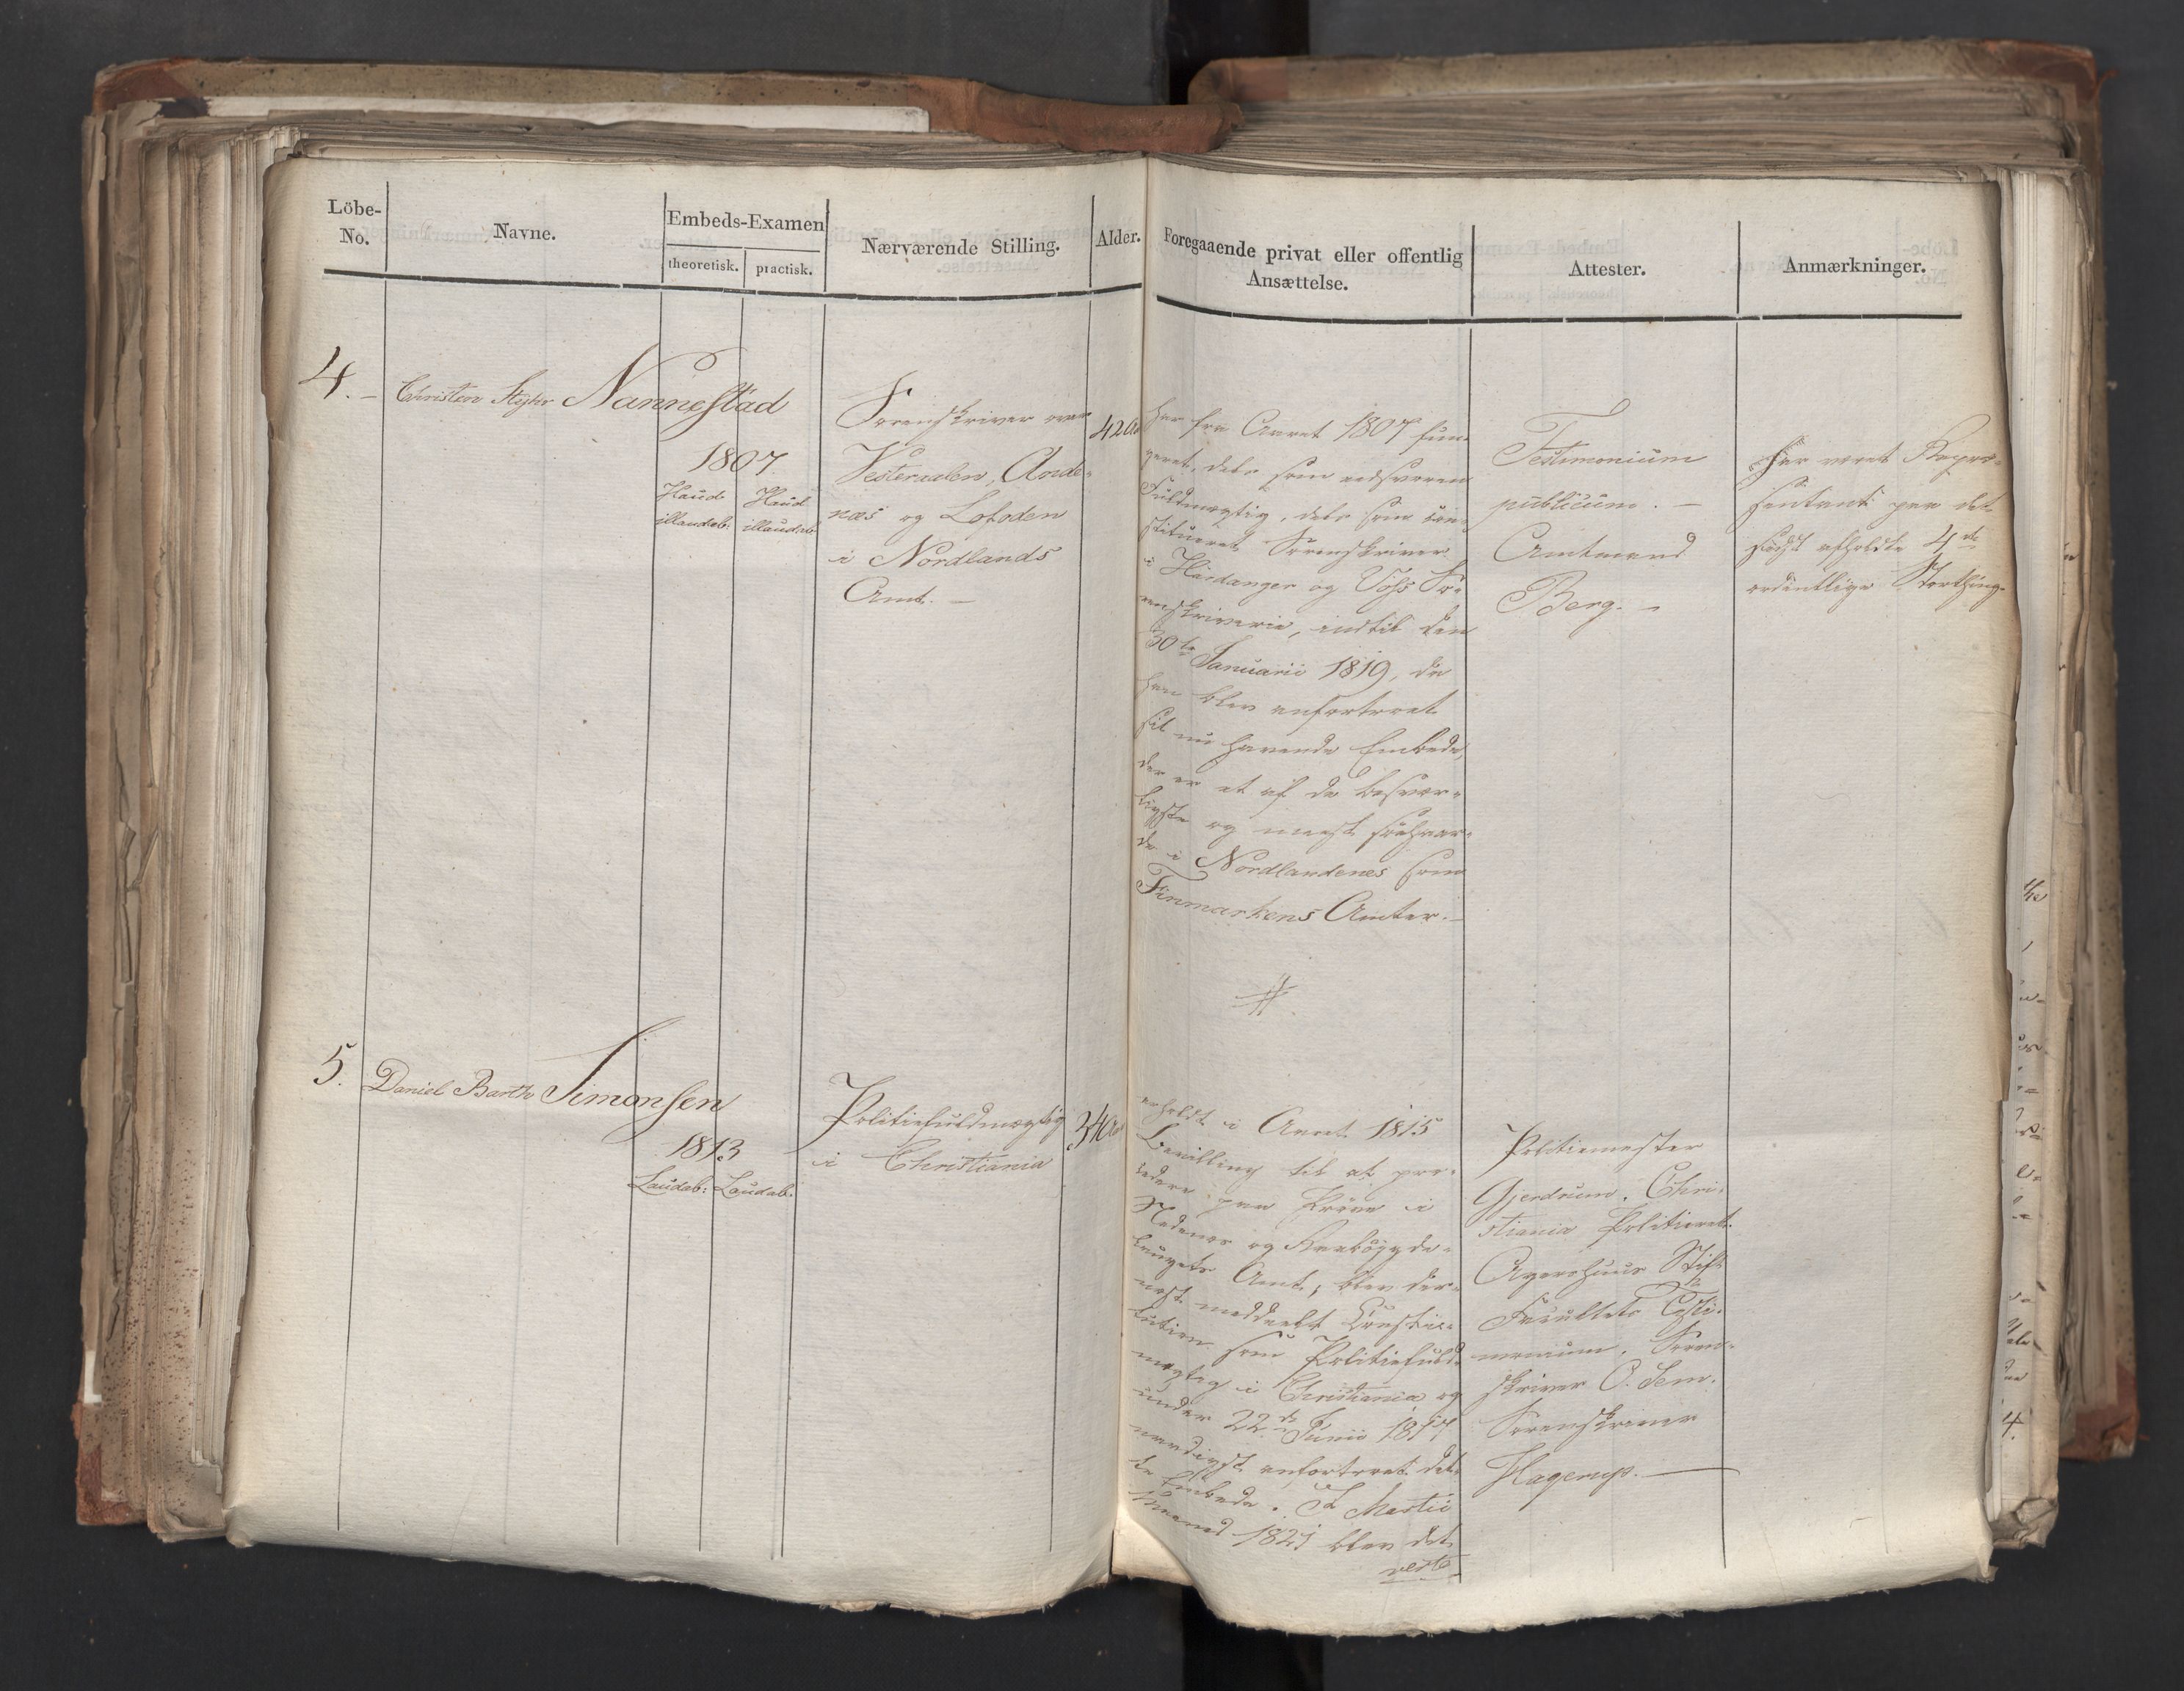 Löbe-
No.
Navne.
Embeds-Examen
theoretisk.
practisk.
Nærværende Stilling.
Alder.
Foregaaende privat eller offentlig
Ansættelse.
Attester.
Anmærkninger.
4. -
Christen Nannestad
1807.
Haud
illaudab:
Haud
illaudab
Sorenskriver over
Vesteraalen, Ande-
næs og Lofoden
i Nordlands
Amt. -
42 Aar
har fra Aaret 1807 fun-
geret, dels som edsvoren
Fuldmægtig, dels som con-
stitueret Sorenskriver
i Hardanger og Voss So-
renskriverie, indtil den
30te Januarii 1819, da
han blev anfortroet
sit nu havende Embede,
der er et af de besvær-
ligste og meest
de i Nordlandenes som
Finmarkens Amter. -
Testimonium
publicum. -
Amtmand
Berg. -
Har været Repræ-
sentant paa det
sidst afholdte 4de
ordentlige Storthing.
5.
Daniel Barth Simonsen
1813
Laudab: Laudab.
Politiefuldmægtig
i Christiania
34 Aar
erholdt i Aaret 1815
Bevilling til at pro-
cedere paa Prøve i
Nedenes og Raabøygde-
laugets Amt, blev der-
næst meddeelt Constitu-
tion som Politiefuld-
mægtig i Christiania og
under 22de Junii 1817
naadigst anfortroet det-
te Embede. I Martii
Maaned 1821 blev det
Politiemester
Gjerdrum. Chri-
stiania Politieret.
Agershuus Stift
Facultets Testi-
monium. Soren-
skriver O. Sem.
Sorenskriver
Hagerup. -